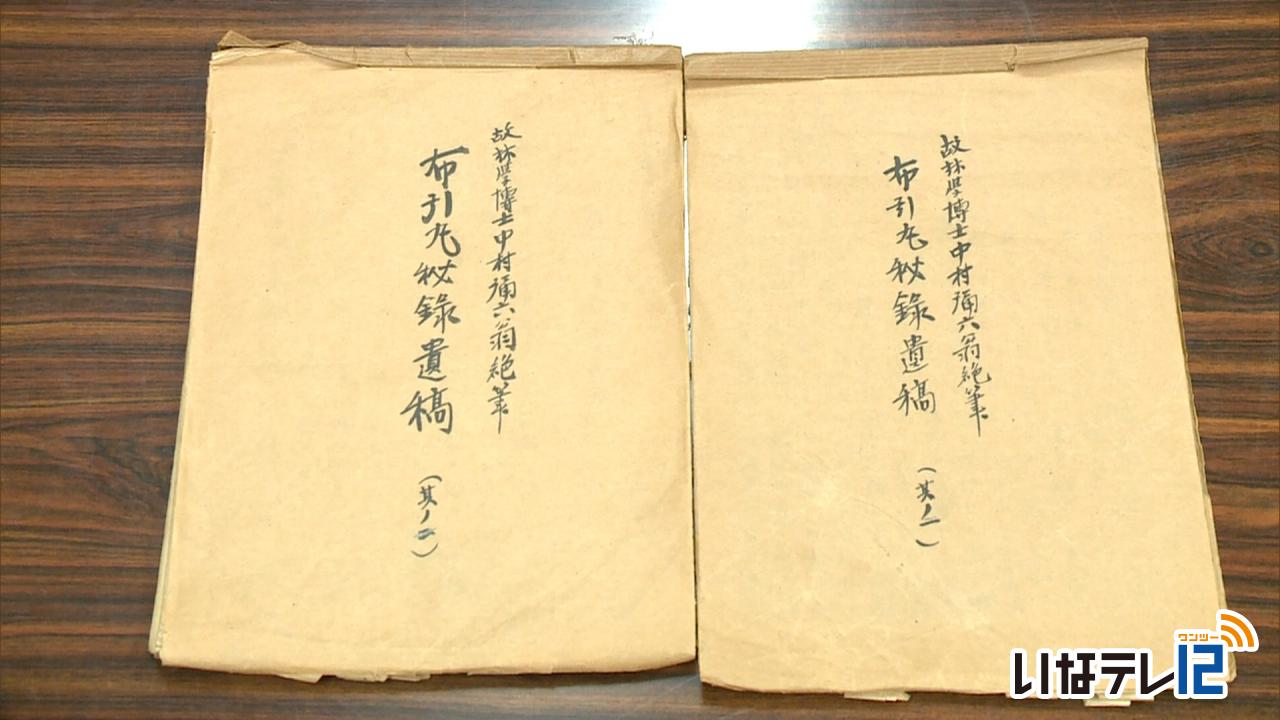 故林学博士中村彌六翁絶筆
布引丸秘録遺稿
(其ノ一)
故林学博士中村彌六翁絶筆
布引丸秘録遺稿
(其ノ二)
ワンツー
いなテレ12